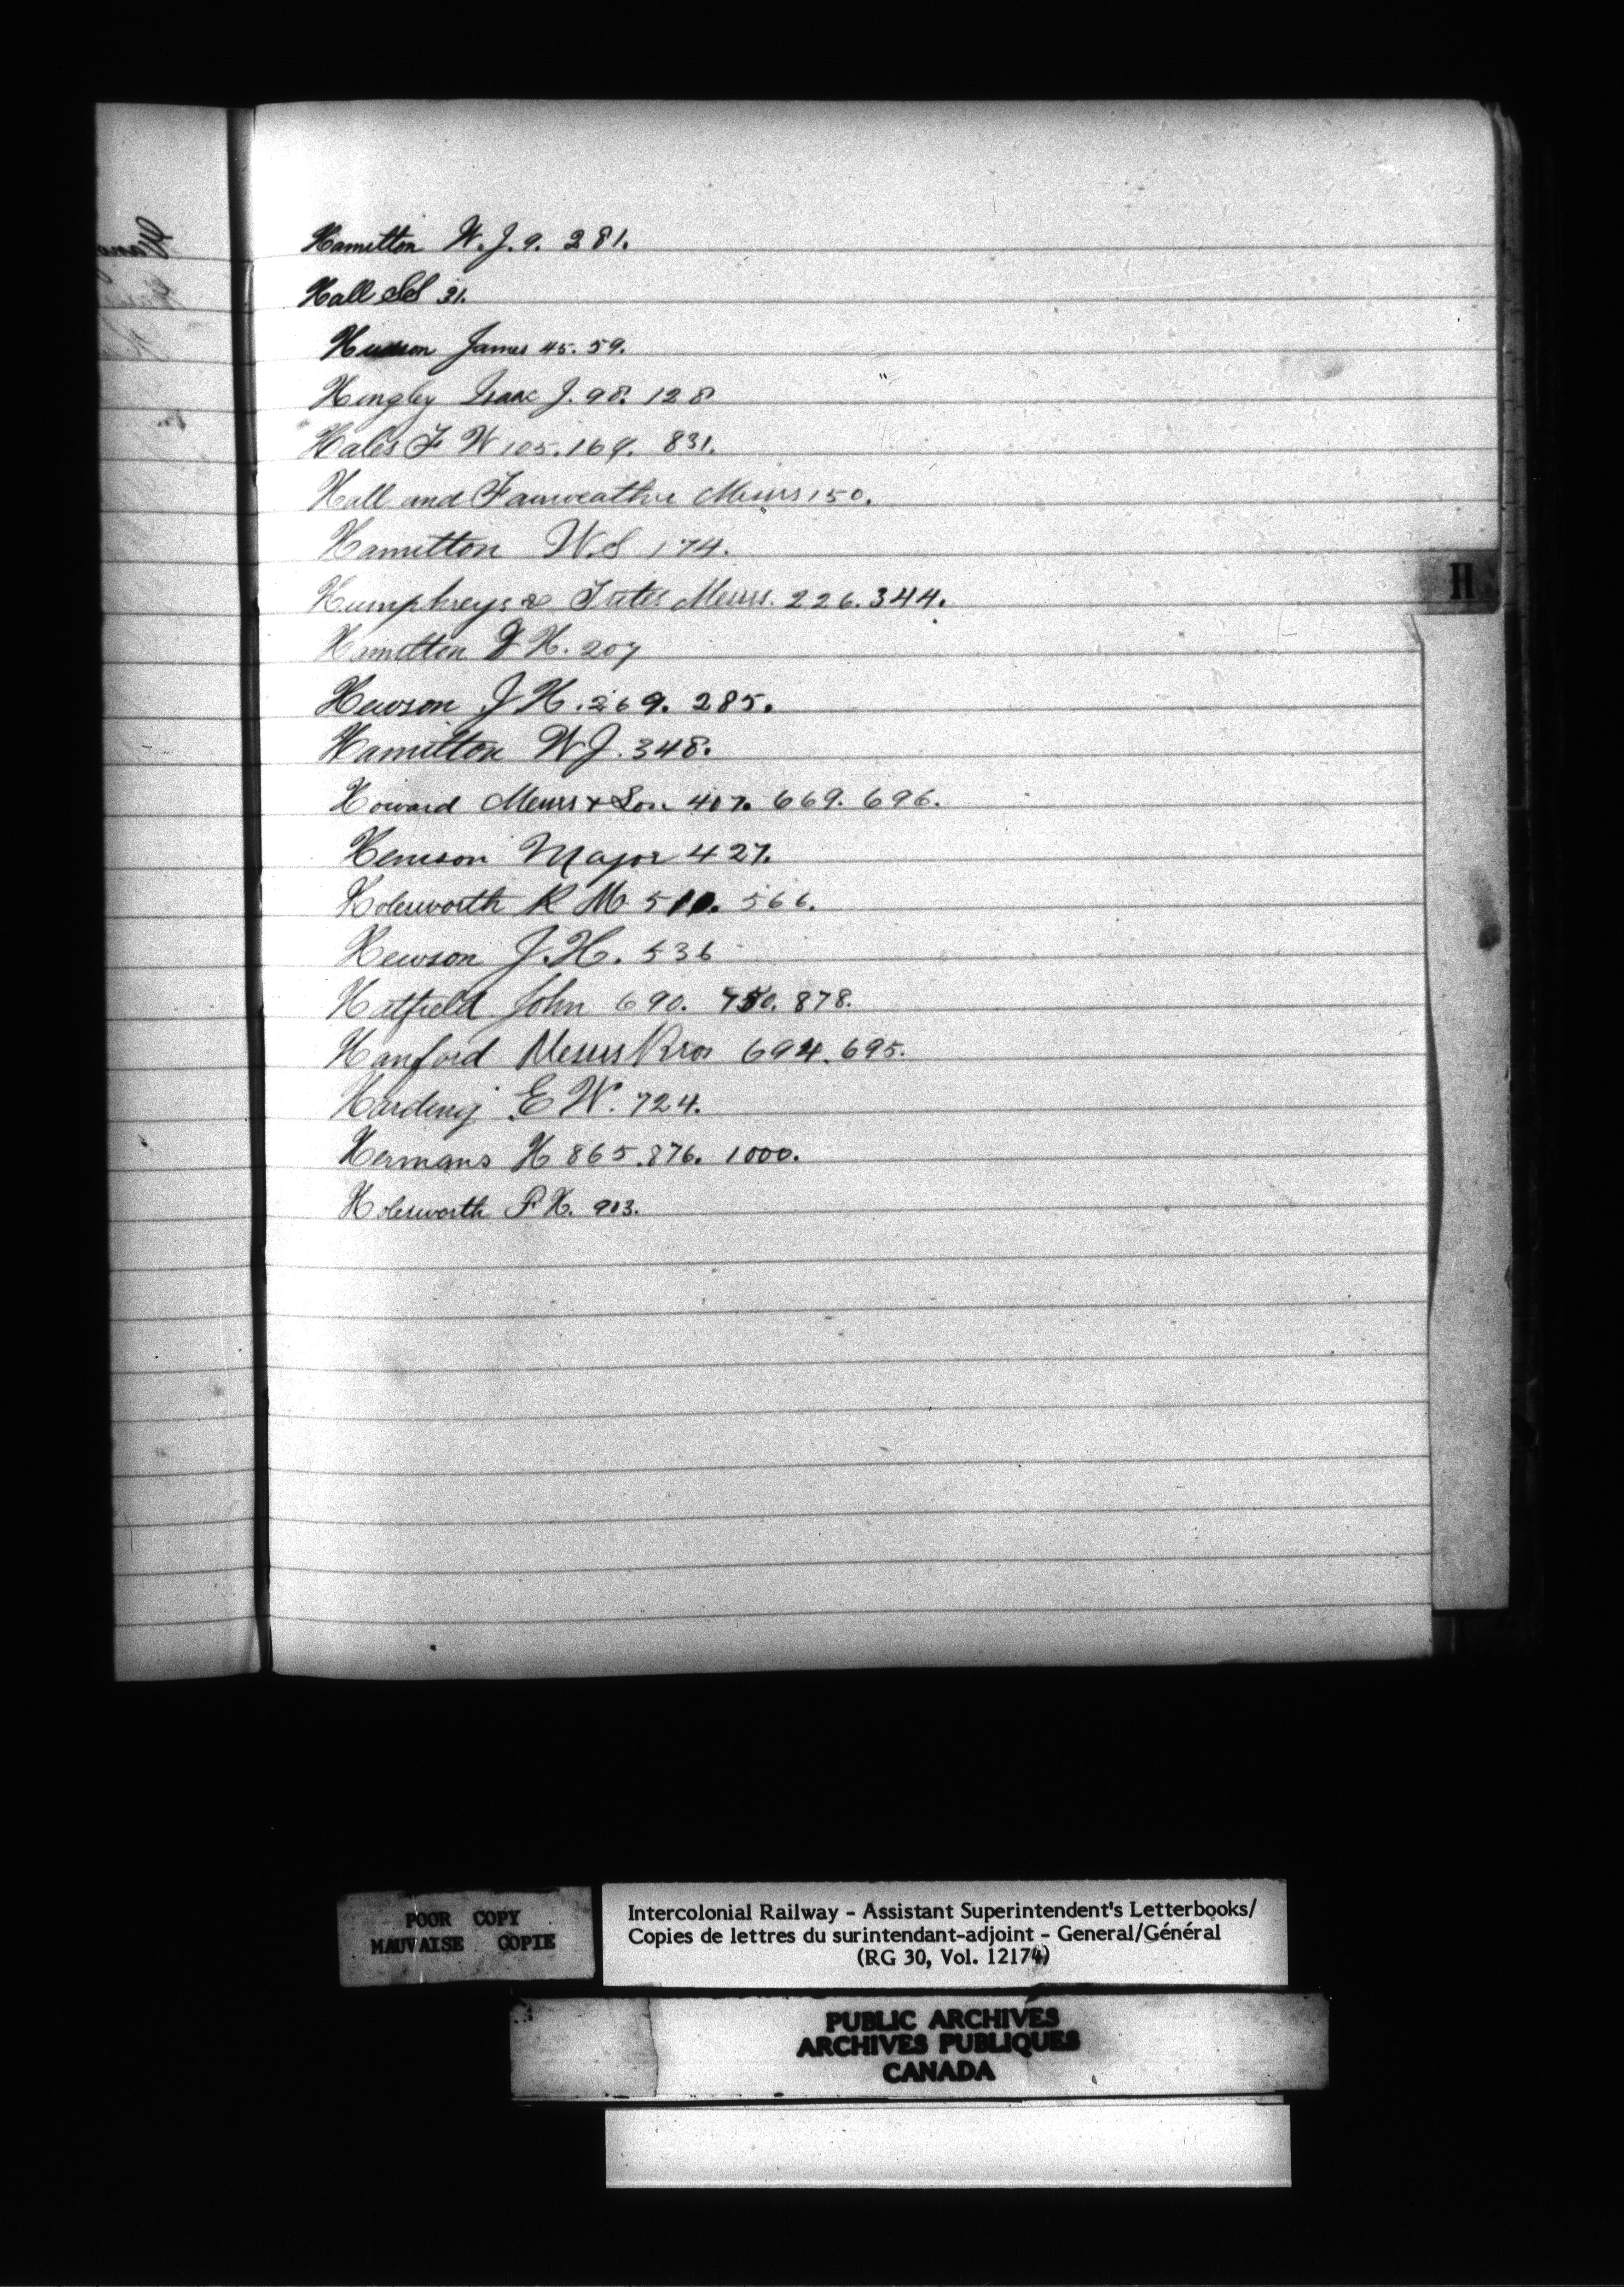 Hamilton W. J. 9. 281.
Hall SS 31.
Hewson James 45. 59.
Hingley Isaac J. 98. 128
Hales F W 105. 169. 831.
Hall and Fairweather Messrs 150.
Hamilton W. S 174.
H
Humphreys & Trites Messrs. 226. 344.
Hamilton H. 207
Hewson J H. 269. 285.
Hamilton W J. 348.
Howard Messrs & Son 407. 669. 696.
Major 427.
Holesworth R M 510. 566.
Hewson J. H. 536
Hatfield John 690. 750. 878.
Hanford Messrs Bros 694. 695.
Harding E W. 724.
Hermans H 865. 876. 1000.
Holesworth P H. 903.
POOR COPY
MAUVAISE COPIE
Intercolonial Railway - Assistant Superintendent's Letterbooks/
Copies de lettres du surintendant-adjoint - General/Général
(RG 30, Vol. 12174)
PUBLIC ARCHIVES
ARCHIVES PUBLIQUES
CANADA